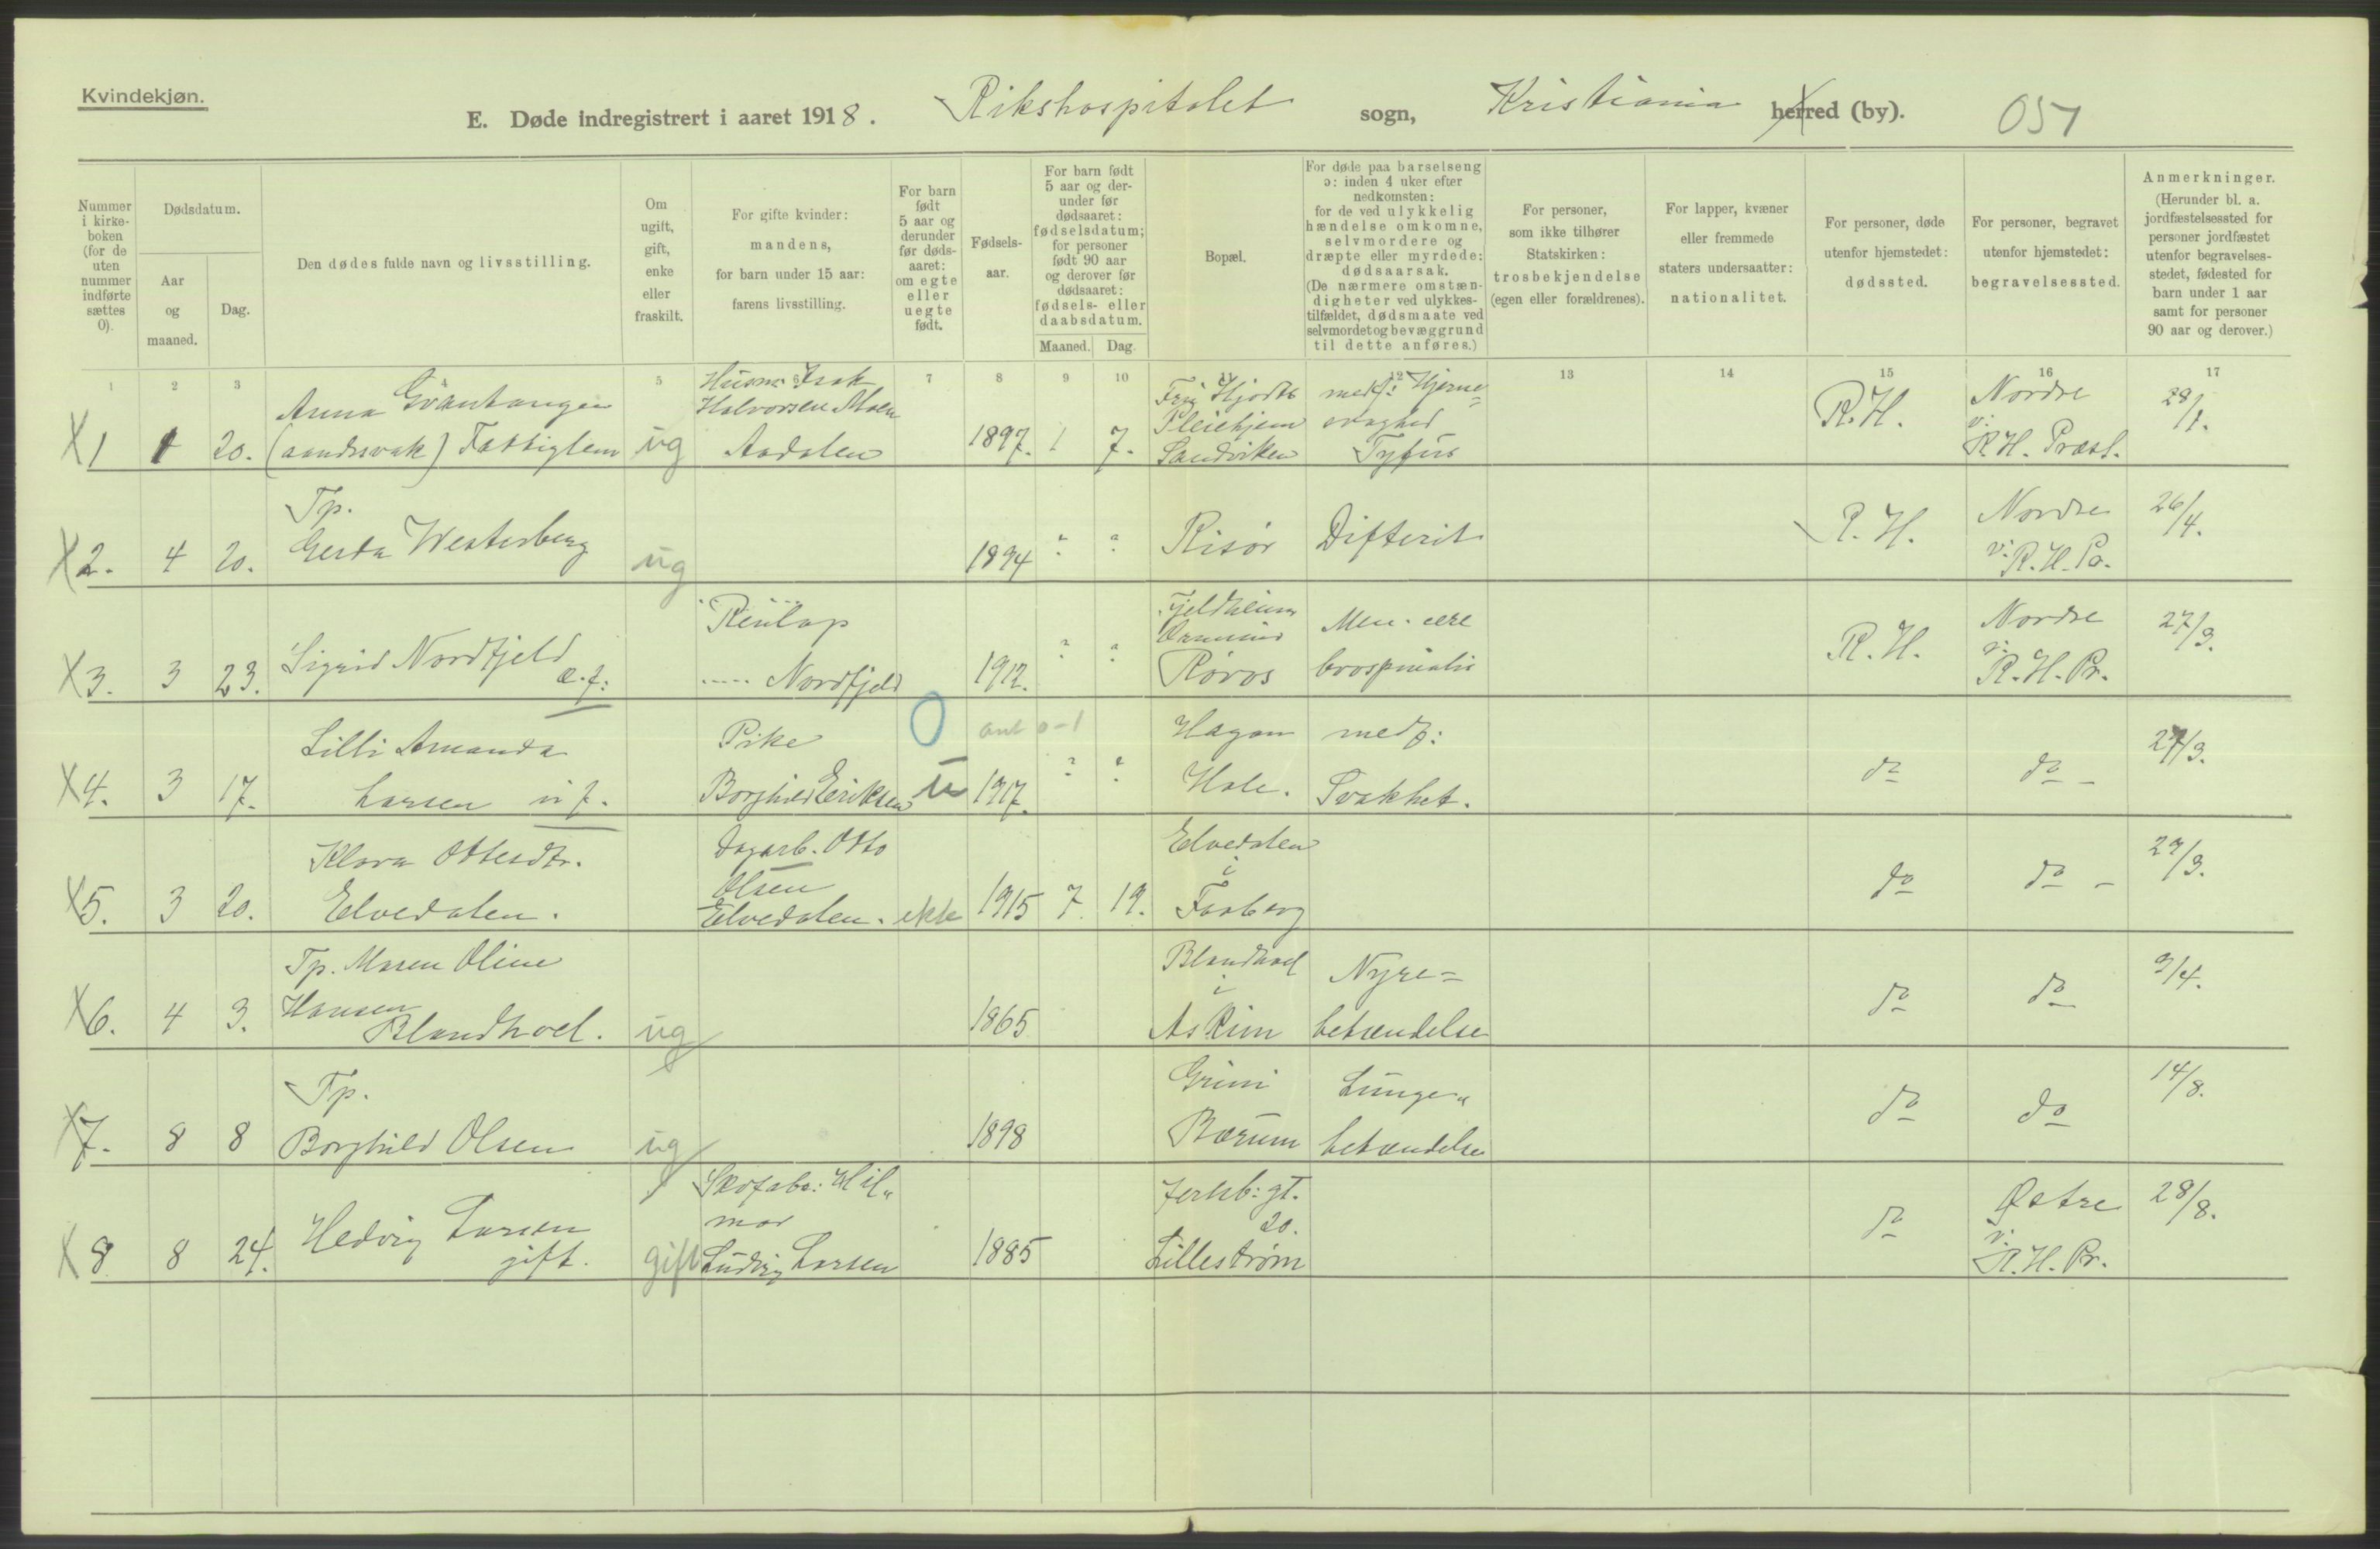 Kvindekjøn.
E. Døde indregistrert i aaret 1918. Rikshospitalet sogn, Kristiania herred (by). 051
Nummer i kirke-boken (for de uten nummer indførte sættes 0).
Dødsdatum.
Aar og maaned.
Dag.
Den dødes fulde navn og livsstilling.
Om ugift, gift, enke eller fraskilt.
For gifte kvinder: mandens, for barn under 15 aar: farens livsstilling.
For barn født 5 aar og derunder før døds-aaret: om egte eller uegte født.
Fødsels-aar.
For barn født 5 aar og der-under før dødsaaret: fødselsdatum; for personer født 90 aar og derover før dødsaaret: fødsels- eller daabsdatum.
Maaned. Dag.
Bopæl.
For døde paa barselseng ɔ: inden 4 uker efter nedkomsten: for de ved ulykkelig hændelse omkomne, selvmordere og dræpte eller myrdede: dødsaarsak. (De nærmere omstæn-digheter ved ulykkes-tilfældet, dødsmaate ved selvmordet og bevæggrund til dette anføres.)
For personer, som ikke tilhører Statskirken: trosbekjendelse (egen eller forældrenes).
For lapper, kvæner eller fremmede staters undersaatter: nationalitet.
For personer, døde utenfor hjemstedet: dødssted.
For personer, begravet utenfor hjemstedet: begravelsessted.
Anmerkninger. (Herunder bl. a. jordfæstelsessted for personer jordfæstet utenfor begravelses-stedet, fødested for barn under 1 aar samt for personer 90 aar og derover.)
1 2 3 5 6 7 8 9 10 11 12 13 14 15 16 17
Husm. Isak
Anna Grantangen Halvorsen Moen Hjorts medf: Hjerne= R.H. Nordre 28/1.
Pleiehjem svaghed v.
X 1 1 20. (aandssvak) Fattiglem ug Aadalen 1897. 1 7. Sandviken Tyfus R.H. Præst.
Tp. Nordre 26/4.
X 2. 4 20. Gerda Westerberg ug 1894 " " Risør Difterit R.H. v. R.H. Pr.
Fjeldheim Nordre 27/3.
X 3. 3 23. Sigrid Nordfjeld e.f. ..... Nordfjeld 1912. " " Røros R.H. v. R.H. Pr.
Lilli Amanda Pike 0 ant 0-1 Hagan medf:
X 4. 3 17. Larsen u f. Borghild Eriksen u 1917. " " Hole. Svakhet. do do - 27/3.
Klara Ottesdtr. Dagarb. Otto Elvedalen
Olsen i
X 5. 3 20. Elvedalen. Elvedalen. ekte 1915 7. 19. Faaberg do do - 27/3.
Tp. Maren Oline Blandhoel Nyre=
Hansen i
X 6. 4 3. Blandhoel. ug 1865 Askim betændelse do do 9/4.
Tp. Grini Lunge"
X 7. 8 8 Borghild Olsen ug 1898 Bærum betændelse do do 14/8.
Skofabr: Hil" Jernb: gt. Østre 28/8.
mar 20. v.
X 8 8 24. Hedvig Larsen gift. gift Ludvig Larsen 1885 Lillestrøm do R.H. Pr.